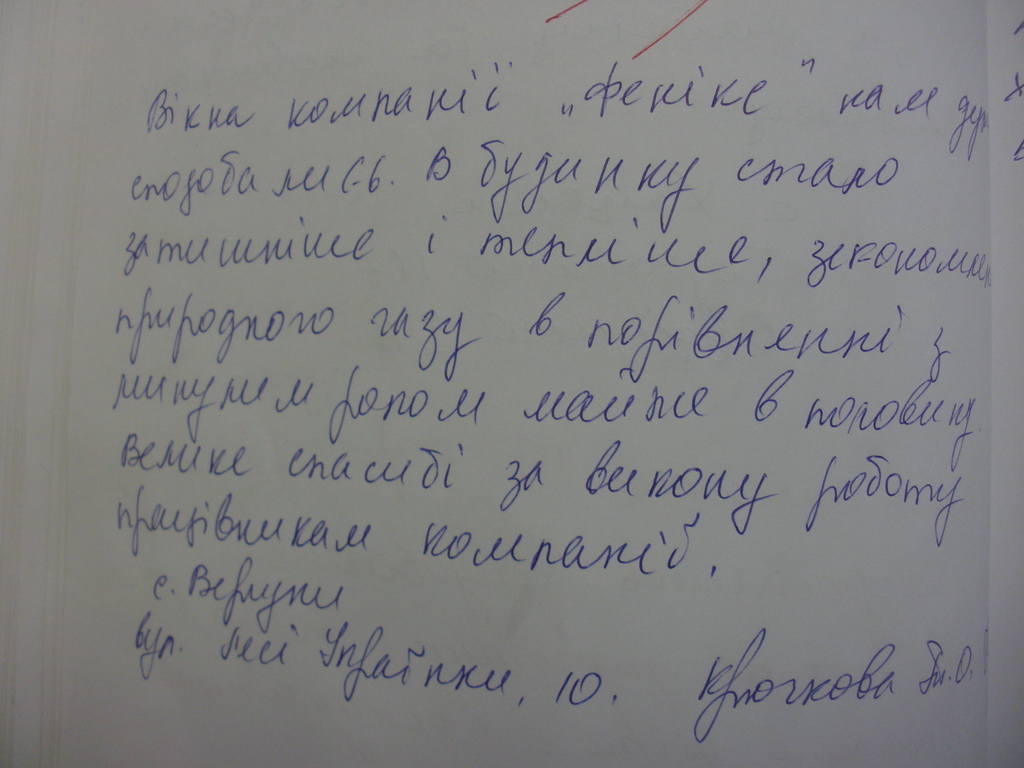 Вікна компанії „Фенікс" нам дуж
сподобались. В будинку стало
затишніше і тепліше, зекономлен
природного газу в порівнянні з
минулим роком майже в половину.
Велике спасибі за викону роботу
працівникам компанії.
с. Вергуни
вул. Лесі Українки, 10. Крючкова Т.О.